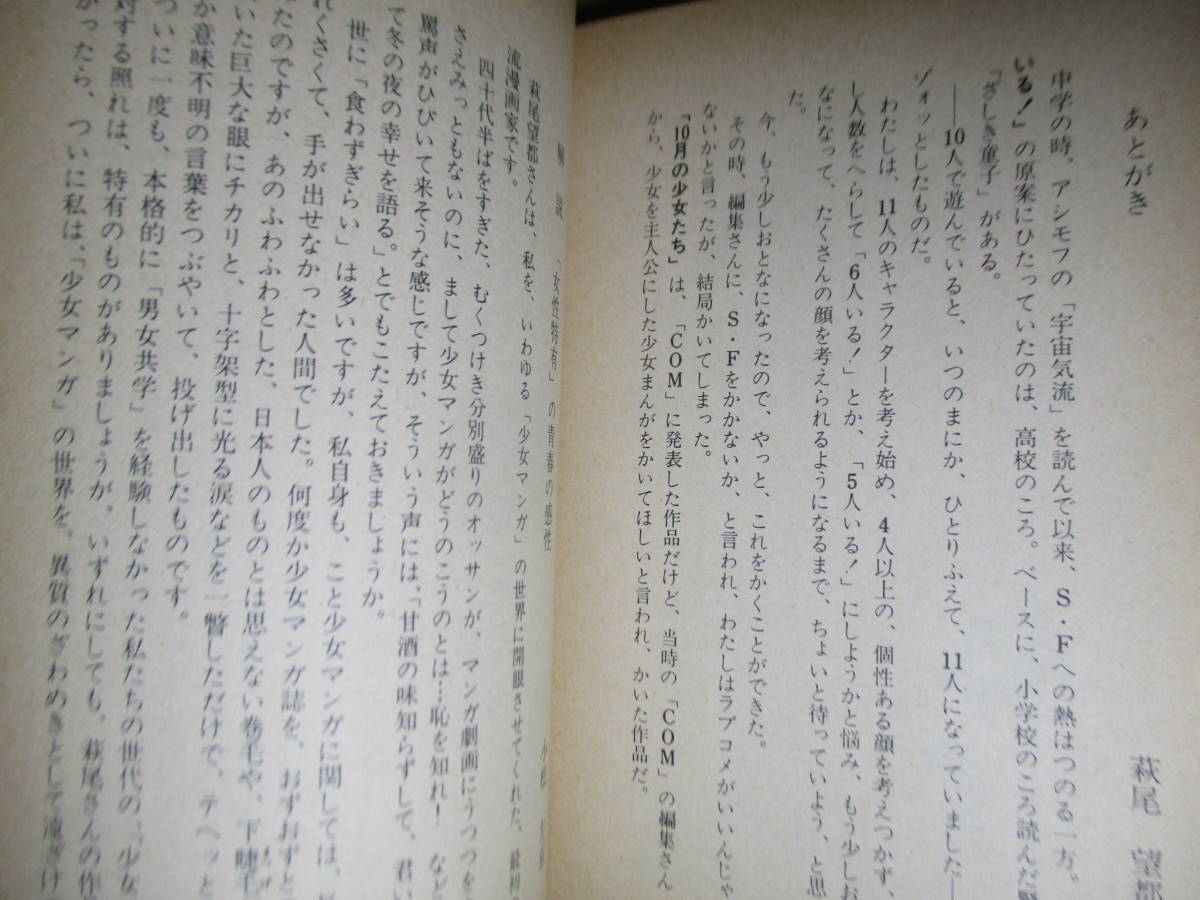 あとがき
萩尾 望都
中学の時、アシモフの「宇宙気流」を読んで以来、S・Fへの熱はつのる一方。
いる!」の原案にひたっていたのは、高校のころ。ベースに、小学校のころ読んだ
「ざしき童子」がある。
――10人で遊んでいると、いつのまにか、ひとりふえて、11人になっていました―
ゾォッとしたものだ。
わたしは、11人のキャラクターを考え始め、4人以上の、個性ある顔を考えつかず、
し人数をへらして「6人いる!」とか、「5人いる!」にしようかと悩み、もう少しお
なになって、たくさんの顔を考えられるようになるまで、ちょいと待っていよう、と思
た。
今、もう少しおとなになったので、やっと、これをかくことができた。
その時、編集さんに、S・Fをかかないか、と言われ、わたしはラブコメがいいんじゃ
ないかと言ったが、結局かいてしまった。
「10月の少女たち」は、「COM」に発表した作品だけど、当時の「COM」の編集さん
から、少女を主人公にした少女まんがをかいてほしいと言われ、かいた作品だ。
解説 「女性特有」の青春の感性
小松
萩尾望都さんは、私を、いわゆる「少女マンガ」の世界に開眼させてくれた、
流漫画家です。
四十代半ばをすぎた、むくつけき分別盛りのオッサンが、マンガ劇画にうつつを
さえみっともないのに、まして少女マンガがどうのこうのとは…恥を知れ! など
罵声がひびいて来そうな感じですが、そういう声には、「甘酒の味知らずして、君い
て冬の夜の幸せを語る。」とでもこたえておきましょうか。
世に「食わずぎらい」は多いですが、私自身も、こと少女マンガに関しては、
れくさくて、手が出せなかった人間でした。何度か少女マンガ誌を、おずおずと
たのですが、あのふわふわとした、日本人のものとは思えない巻毛や、下睫毛
いた巨大な眼にチカリと、十字架型に光る涙などを一瞥しただけで、テヘッと
か意味不明の言葉をつぶやいて、投げ出したものです。
ついに一度も、本格的に「男女共学」を経験しなかった私たちの世代の、「少女
対する照れは、特有のものがありましょうが、いずれにしても、萩尾さんの作
かったら、ついに私は、「少女マンガ」の世界を、異質のざわめきとして